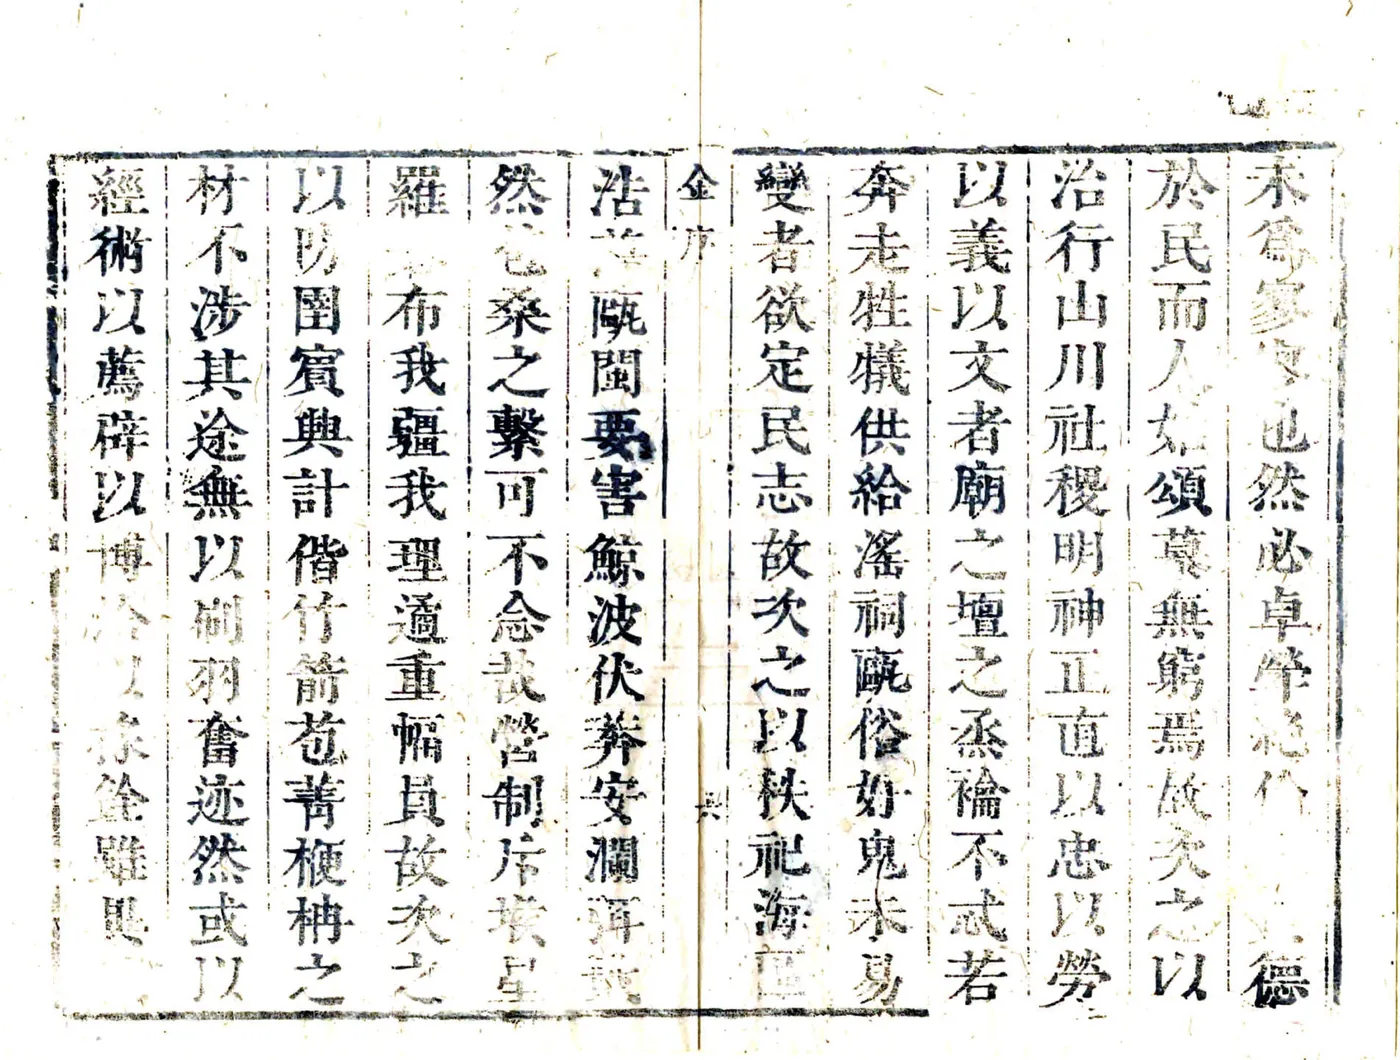 未為寥寥也然必卓犖絕人德
於民而人如頌慕無窮焉故次之以
治行山川社稷明神正直以忠以勞
以義以文者廟之壇之烝禴不忒若
奔走牲犠供給滛祠甌俗好鬼未易
變者欲定民志故次之以秩祀海區
金序
浩甌閩要害鯨波伏莽安瀾弭
然苞桑之繫可不念哉營制斥堠星
羅布我疆我理遹重幅員故次之
以防圉賓興計偕竹箭苞菁楩柟之
材不涉其途無以礪羽奮迹然或以
經術以薦辟以博以銓雖